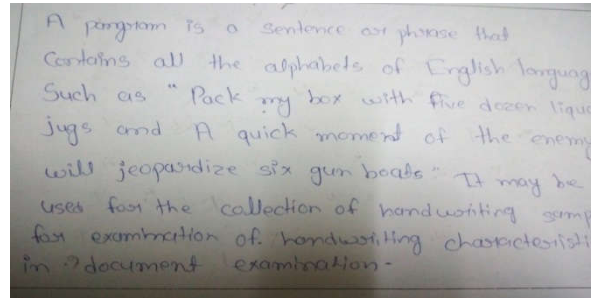 A pangram is a sentence or phrase that
Contains all the alphabets of English languag
Such as " Pack my box with five dozen lique
jugs and A quick moment of the enemy
will jeopardize six gun boats " It may be
used for the collection of handwriting samp
for examination of. handwriting characteristi
in ? document examination -